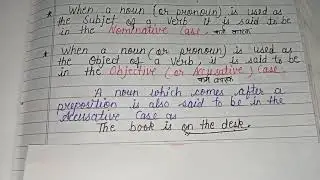 * When a noun (or pronoun) is used as
the Subjet of a Verb it is said to be
in the Nominative Case. कर्ता कारक
* When a noun (or pronoun) is used as
the Object of a Verb, it is said to be
in the Objective (or Accusative) Case.
कर्म कारक
A noun which comes after a
preposition is also said to be in the
Accusative Case as
The book is on the desk.